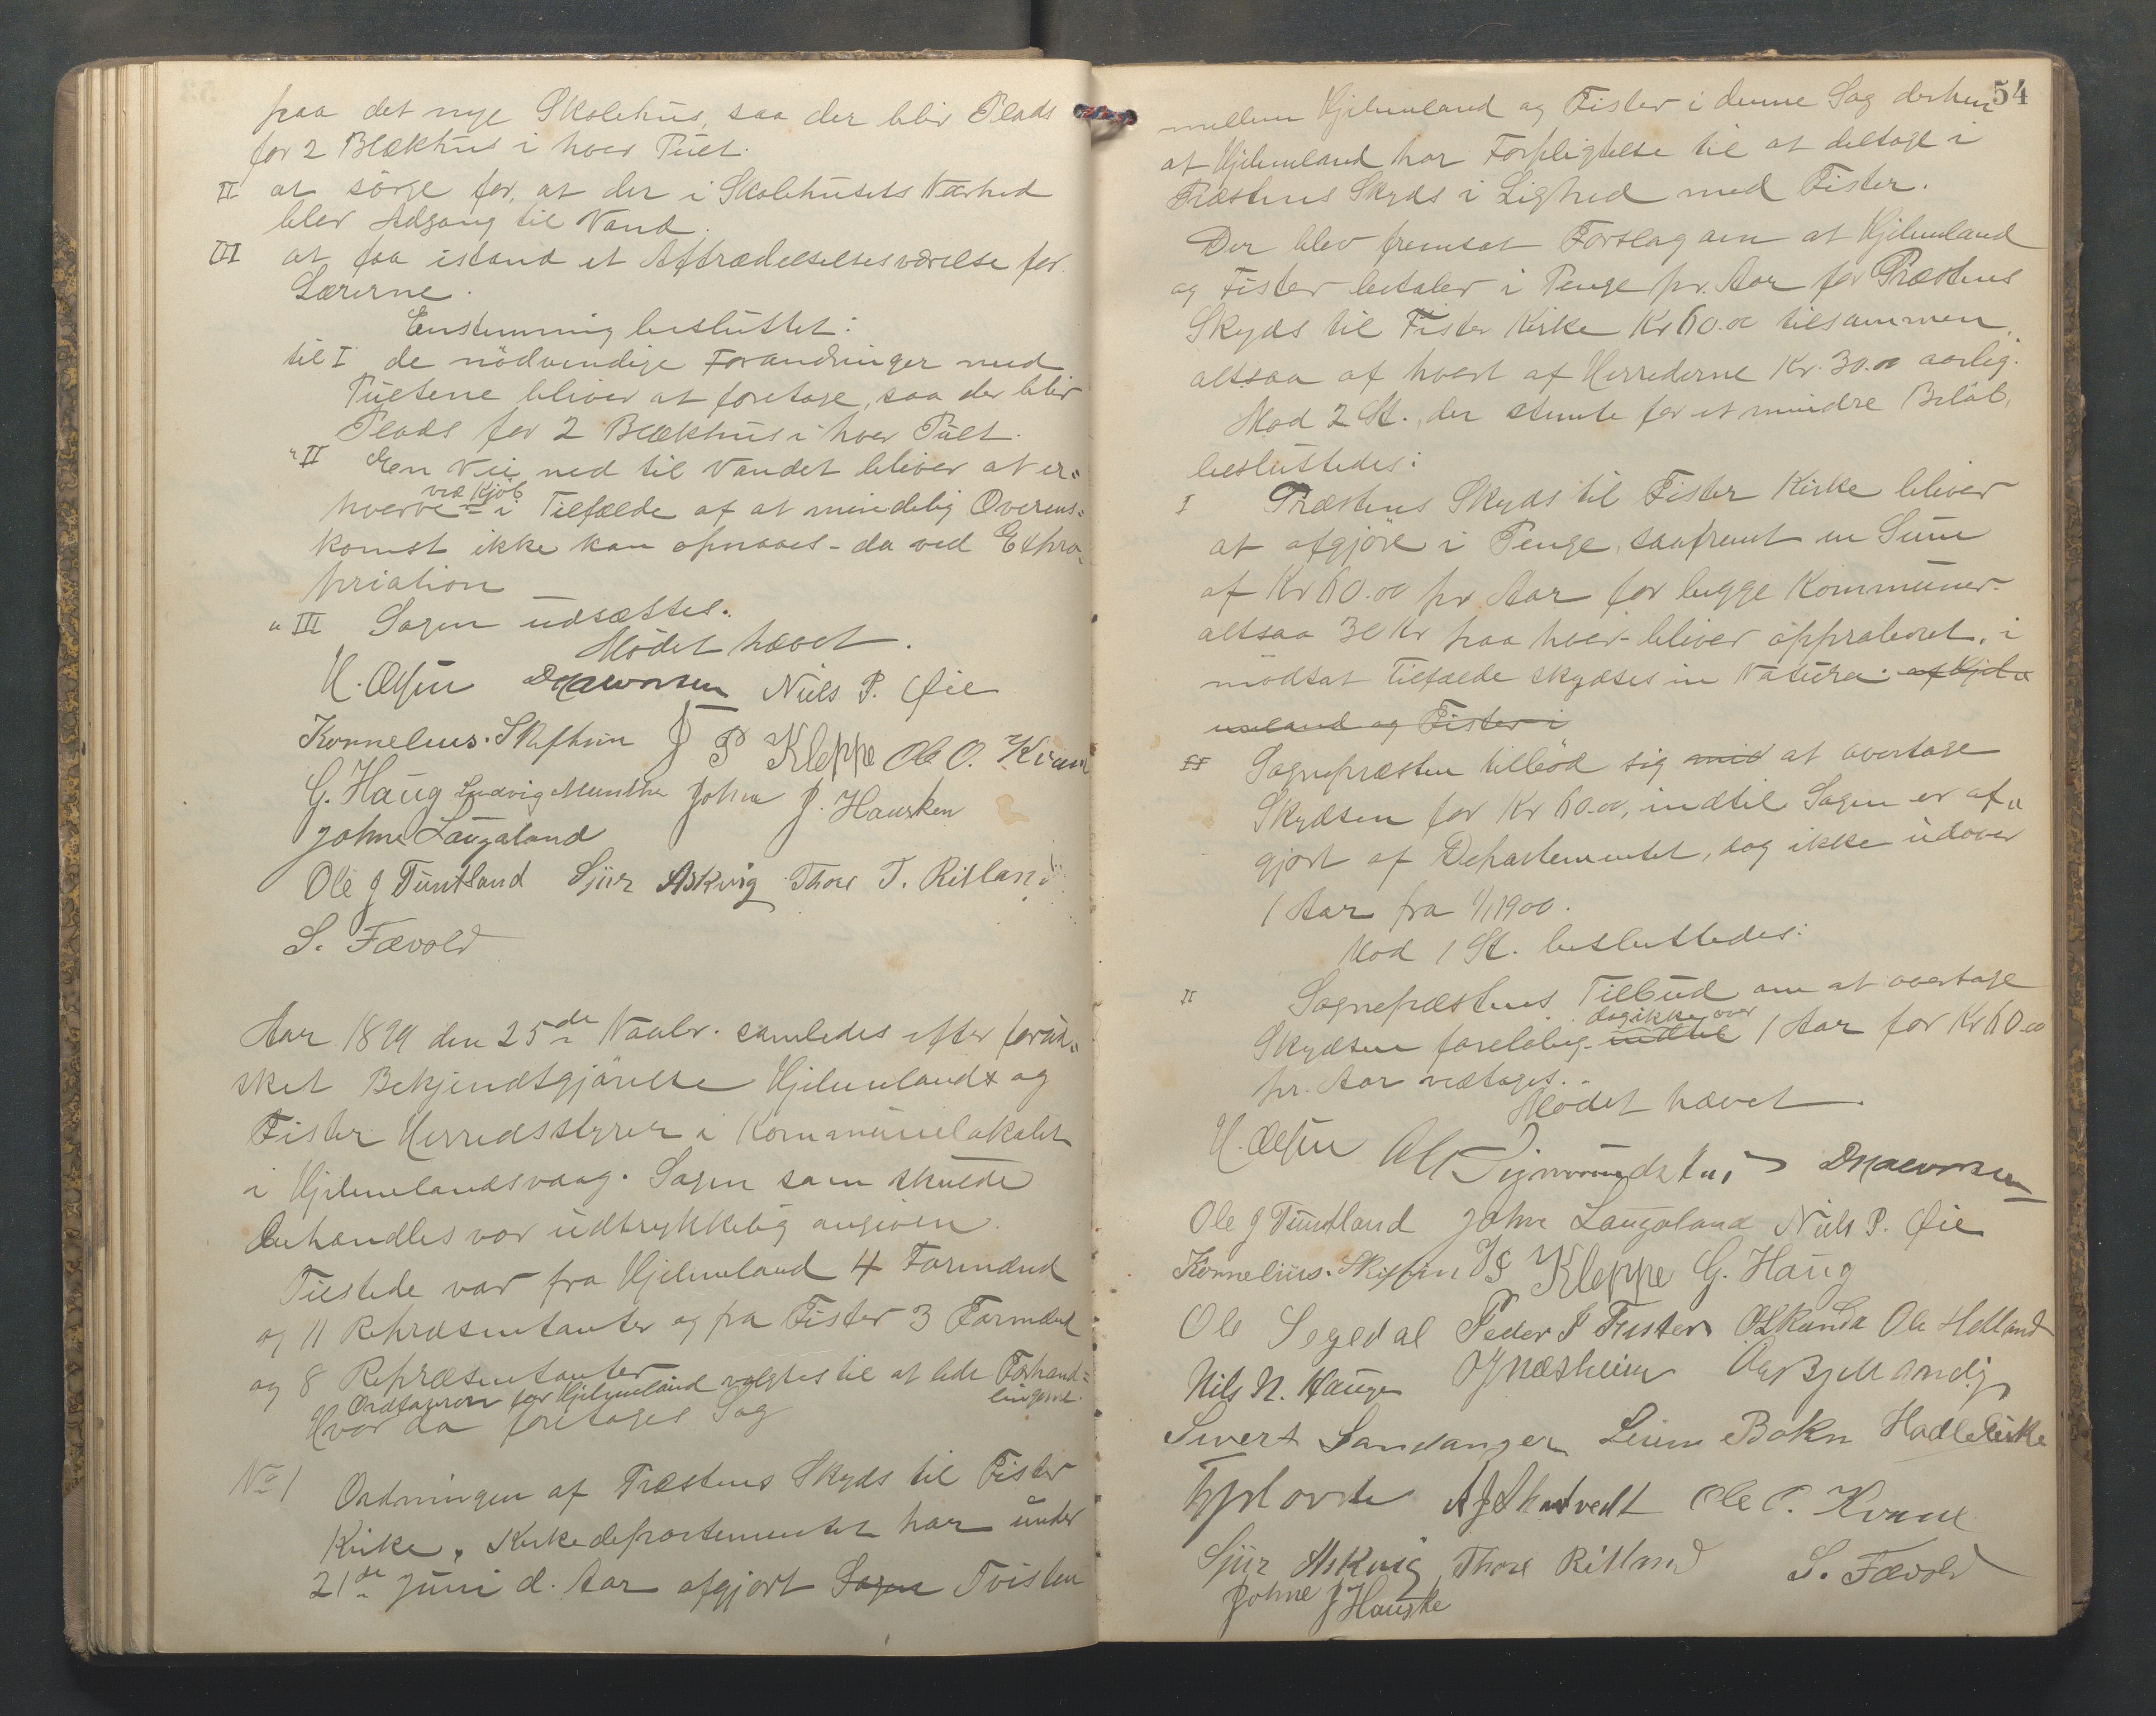 paa det nye Skolehus, saa der blir Plads
for 2 Blækhus i hver Pult.
II at sörge for, at der i Skolehusets Nærhed
blev Adgang til Vand.
III at faa istand et Aftrædelsesværelse for
Lærerne.
Enstemmig besluttet:
til I de nödvendige Forandringer med
Pultene bliver at foretage, saa der blir
Plads for 2 Blækhus i hver Pult.
" II Een Vei ned til Vandet bliver at er-
ved Kjöb
hverve - i Tilfælde af at mindelig Overens-
komst ikke kan opnaaes - da ved Expro-
priation
" III Sagen udsættes.
Mödet hævet.
H. Olsen Niels P. Øie
Kornelius Skiftun J P Kleppe Ole O. Kvame
G. Haug Ludvig Munthe Johne J. Hausken
John Laugaland
Ole J Tuntland Sjur Askvig Thore T. Ritland
S. Fævold
Aar 1899 den 25de Novbr. samledes efter forud-
sket Bekjendtgjörelse Hjelmelands og
Fister Herredsstyrer i Kommunelokalet
i Hjelmelandsvaag. Sagen som skulde
behandles var udtrykkelig angiven.
Tilstede var fra Hjelmeland 4 Formænd
og 11 Repræsentanter og fra Fister 3 Formænd
og 8 Repræsentanter
Ordføreren for Hjelmeland valgtes til at lede Forhand-
lingerne.
Hvor da foretages Sag
No 1 Ordningen af Præstens Skyds til Fister
Kirke. Kirkedepartementet har under
21de Juni d. Aar afgjort Sagen Tvisten
54
mellem Hjelmeland og Fister i denne Sag derhen
at Hjelmeland har Forpligtelse til at deltage i
Præstens Skyds i Lighed med Fister.
Der blev fremsat Forslag om at Hjelmeland
og Fister betaler i Penge pr. Aar for Præstens
Skyds til Fister Kirke Kr 60.00 tilsammen,
altsaa af hvert af Herrederne Kr. 30.00 aarlig.
Mod 2 St., der stemte for et mindre Belöb,
besluttedes:
I Præstens Skyds til Fister Kirke bliver
at afgjöre i Penge, saafremt en Sum
af Kr 60.00 pr Aar for begge Kommuner -
altsaa 30 Kr paa hver - bliver approberet, i
modsat Tilfælde skydses in Natura. af Hjel-
meland og Fister i
II Sognepræsten tilböd sig med at overtage
Skydsen for Kr 60.00, indtil Sagen er af-
gjort af Departementet, dog ikke udover
1 Aar fra 1/1 1900.
Mod 1 St. besluttedes:
II Sognepræstens Tilbud om at overtage
dog ikke over
Skydsen forelöbig indtil 1 Aar for Kr 60.00
pr. Aar vedtages.
Mödet hævet.
H. Olsen
Ole J Tuntland John Laugaland Niels P. Øie
Kornelius Skiftun Kleppe G. Haug
Ole Segedal Peder P Fister Ole Helland
Nils N. Hauge Næsheim
Sivert Sandanger Bokn
Ole O. Kvame
Sjur Askvig Thore Ritland S. Fævold
Johne J Hauske